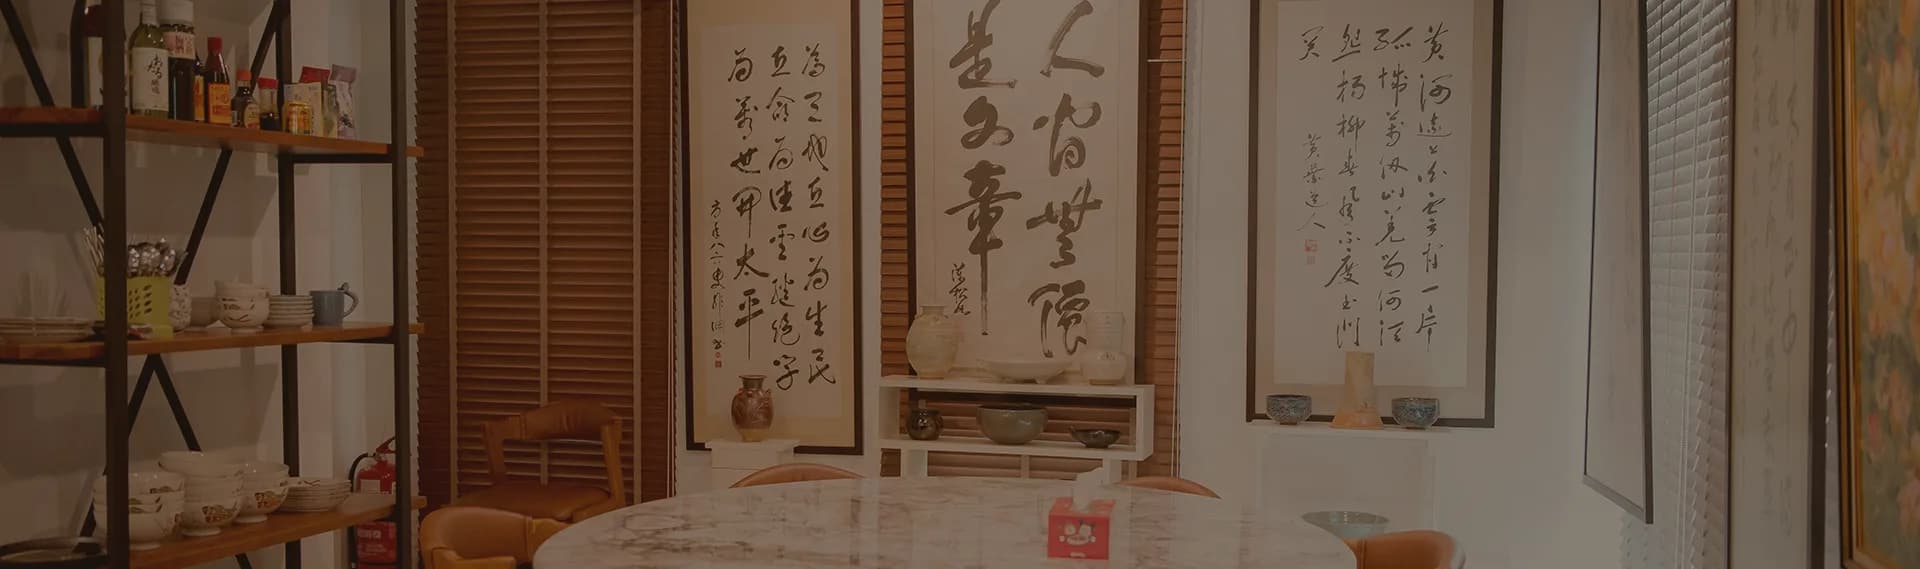 為天地立心為生民
立命為往聖繼絕學
為萬世開太平
人間無價
是文章
黃河遠上白雲間一片
孤城萬仞山羌笛何須
怨楊柳春風不度玉門
關
黃葉道人